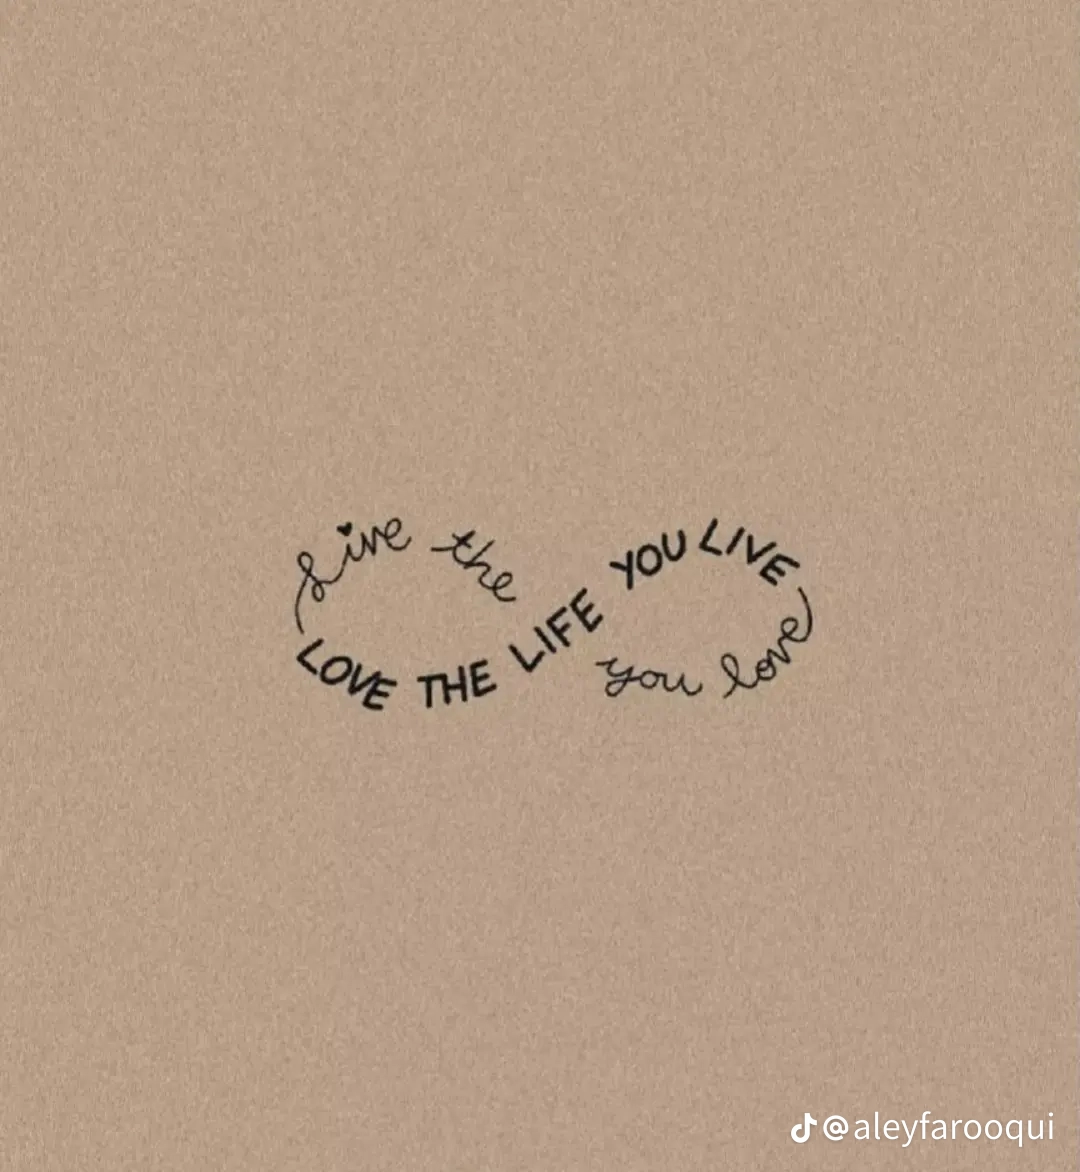 Live the
LIFE
you love
LOVE THE LIFE YOU LIVE
@aleyfarooqui